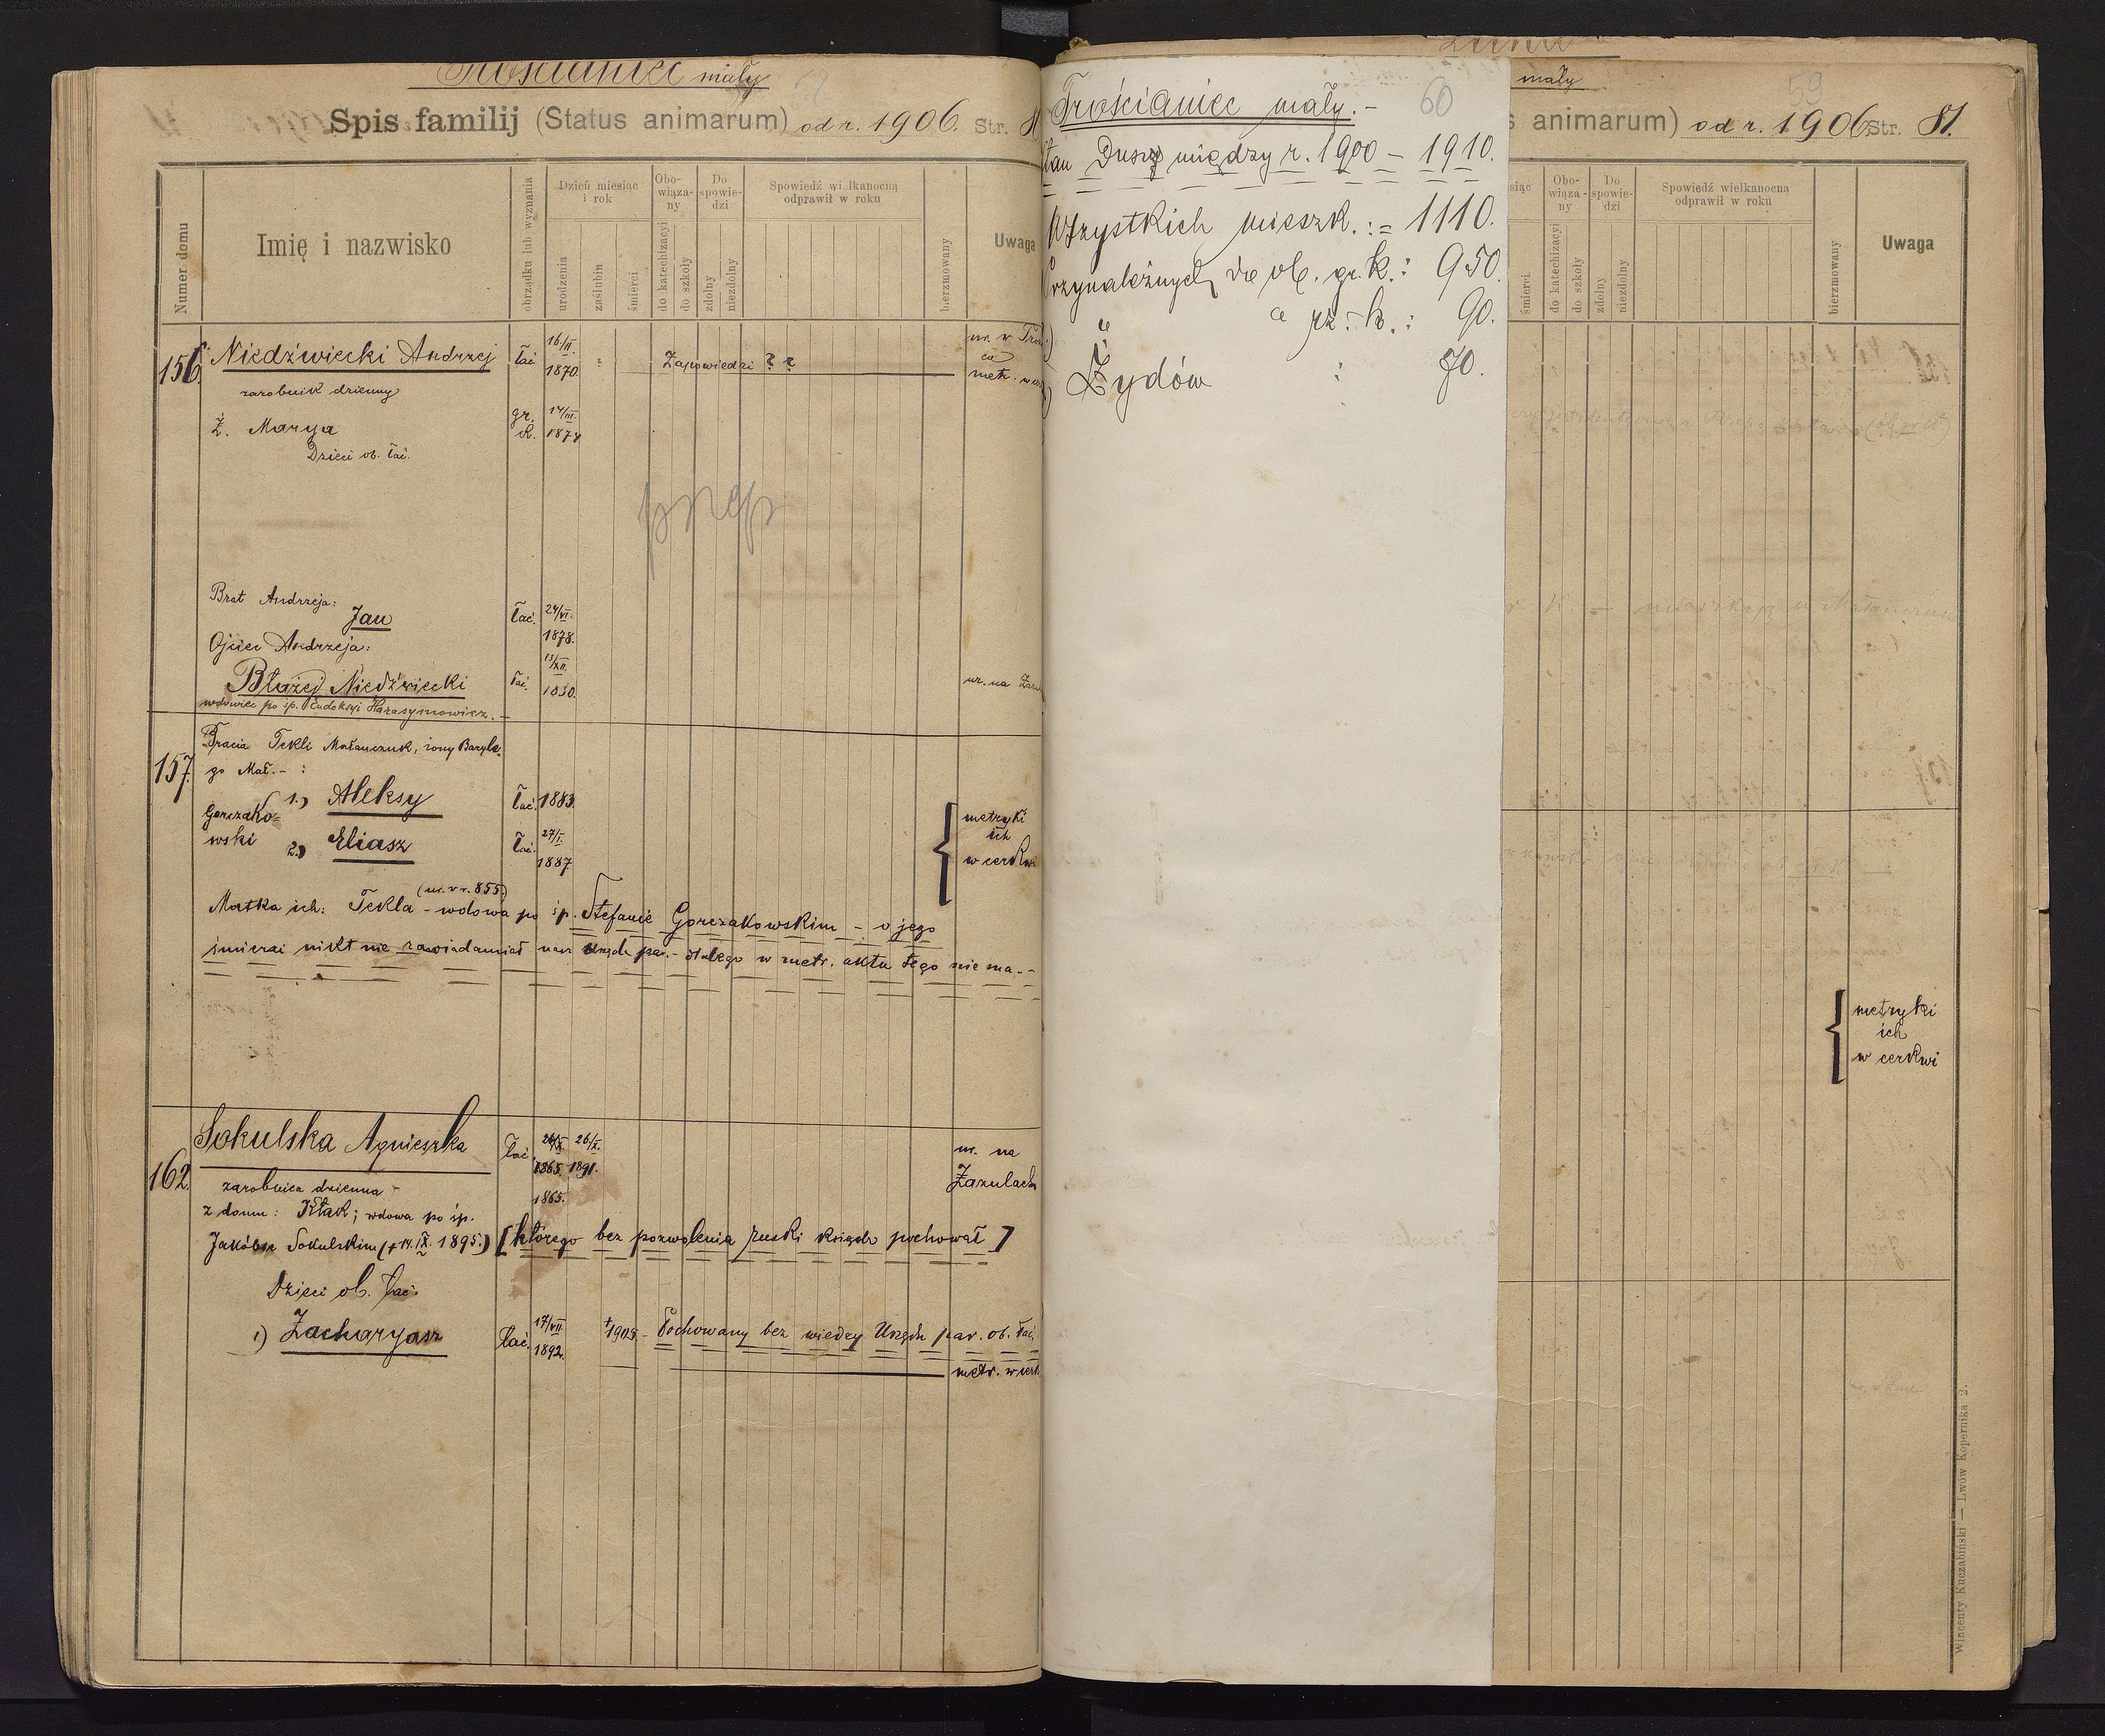 Trościaniec mały
58
Spis familij (Status animarum) od r. 1906. Str.
Numer domu
Imię i nazwisko
obrządku lub wyznania
Dzień miesiąc i rok
urodzenia
zaślubin
śmierci
Obo-wiąza-ny
do katechizacyi
do szkoły
Do spowie-dzi
zdolny
niezdolny
Spowiedź wielkanocną odprawił w roku
bierzmowany
Uwaga
156. Niedźwiecki Andrzej łać 16/II. 1870. Zapowiedzi ? ?
zarobnik dzienny
ur. w
metr. w
Ż. Marya gr. k. 14/III. 1874
Dzieci ob. łać.
Brat Andrzeja:
Jan łać. 24/VI. 1878.
Ojciec Andrzeja:
Błażej Niedźwiecki łać. 13/XII. 1830. ur. na
wdowiec po śp. Eudoksyi Harasymowicz. –
157. Bracia Tekli Małanczuk, żony Bazyle-
go Mał. – :
Gorczako=
wski
1.) Aleksy łać. 1883.
2.) Eliasz łać. 27/I. 1887
metryki
ich
w cerkwi
(ur. w r. 855.)
Matka ich: Tekla – wdowa po śp. Stefanie Gorczakowskim – o jego
śmierci nikt nie zawiadamiał nasz Urząd par. – dlatego w metr. aktu tego nie ma. –
162. Sokulska Agnieszka łać. 1865. 26/X. 1891.
1865.
ur. na
Zazulach
zarobnica dzienna –
z domu: Kłak; wdowa po śp.
Jakóbie Sokulskim († 14. IX. 1895.) [którego bez pozwolenia ruski ksiądz pochował]
Dzieci ob. łać.
1) Zacharyasz łać. 17/VII. 1892. †1905. – Pochowany bez wiedzy Urzędu par. ob. łać.
metr. w cerk
Trościaniec mały. –
60
Stan Dusz między r. 1900 – 1910.
Wszystkich mieszk. : = 1110.
Przynależnych do ob. gr. k. : 950.
" " rz. – k. : 90.
Żydów : 70.
mały
59
animarum) od r. 1906 Str. 81.
śmierci
Obo-wiąza-ny
do katechizacyi
do szkoły
Do spowie-dzi
zdolny
niezdolny
Spowiedź wielkanocną odprawił w roku
bierzmowany
Uwaga
metryki
ich
w cerkwi
Wincenty Kuczabiński — Lwów Kopernika 2.